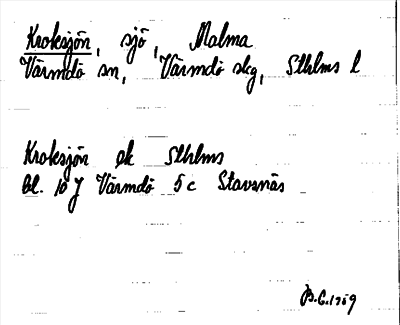 Kroksjön, sjö, Malma
Värmdö sn, Värmdö skg, Sthlms l
Kroksjön ek Sthlms
bl. 10 J Värmdö 5 c Stavsnäs
B.G. 1959